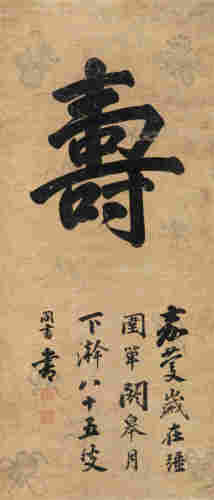 壽
嘉慶歲在彊
圉單閼皋月
下澣八十五叟
同書書